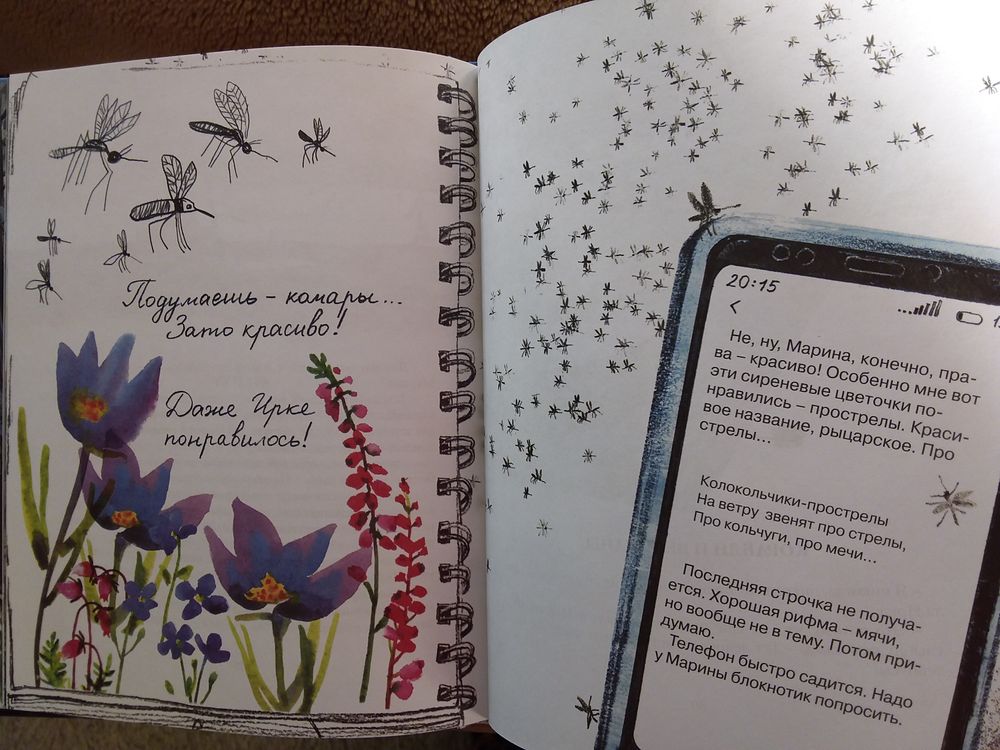 Подумаешь – комары...
Зато красиво!
Даже Ирке
понравилось!
20:15
<
Не, ну, Марина, конечно, пра-
ва – красиво! Особенно мне вот
эти сиреневые цветочки по-
нравились – прострелы. Краси-
вое название, рыцарское. Про
стрелы...
Колокольчики-прострелы
На ветру звенят про стрелы,
Про кольчуги, про мечи...
Последняя строчка не получа-
ется. Хорошая рифма – мячи,
но вообще не в тему. Потом при-
думаю.
Телефон быстро садится. Надо
у Марины блокнотик попросить.